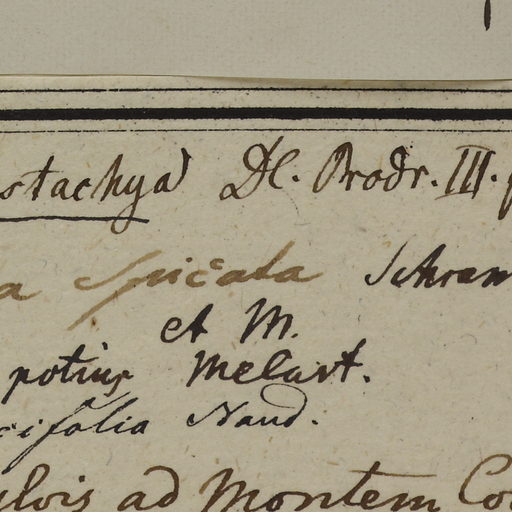 stachya DC. Prodr. III. p
a spicata Schran
et M.
potius Melast.
cifolia Naud.
ylvis ad Montem Co